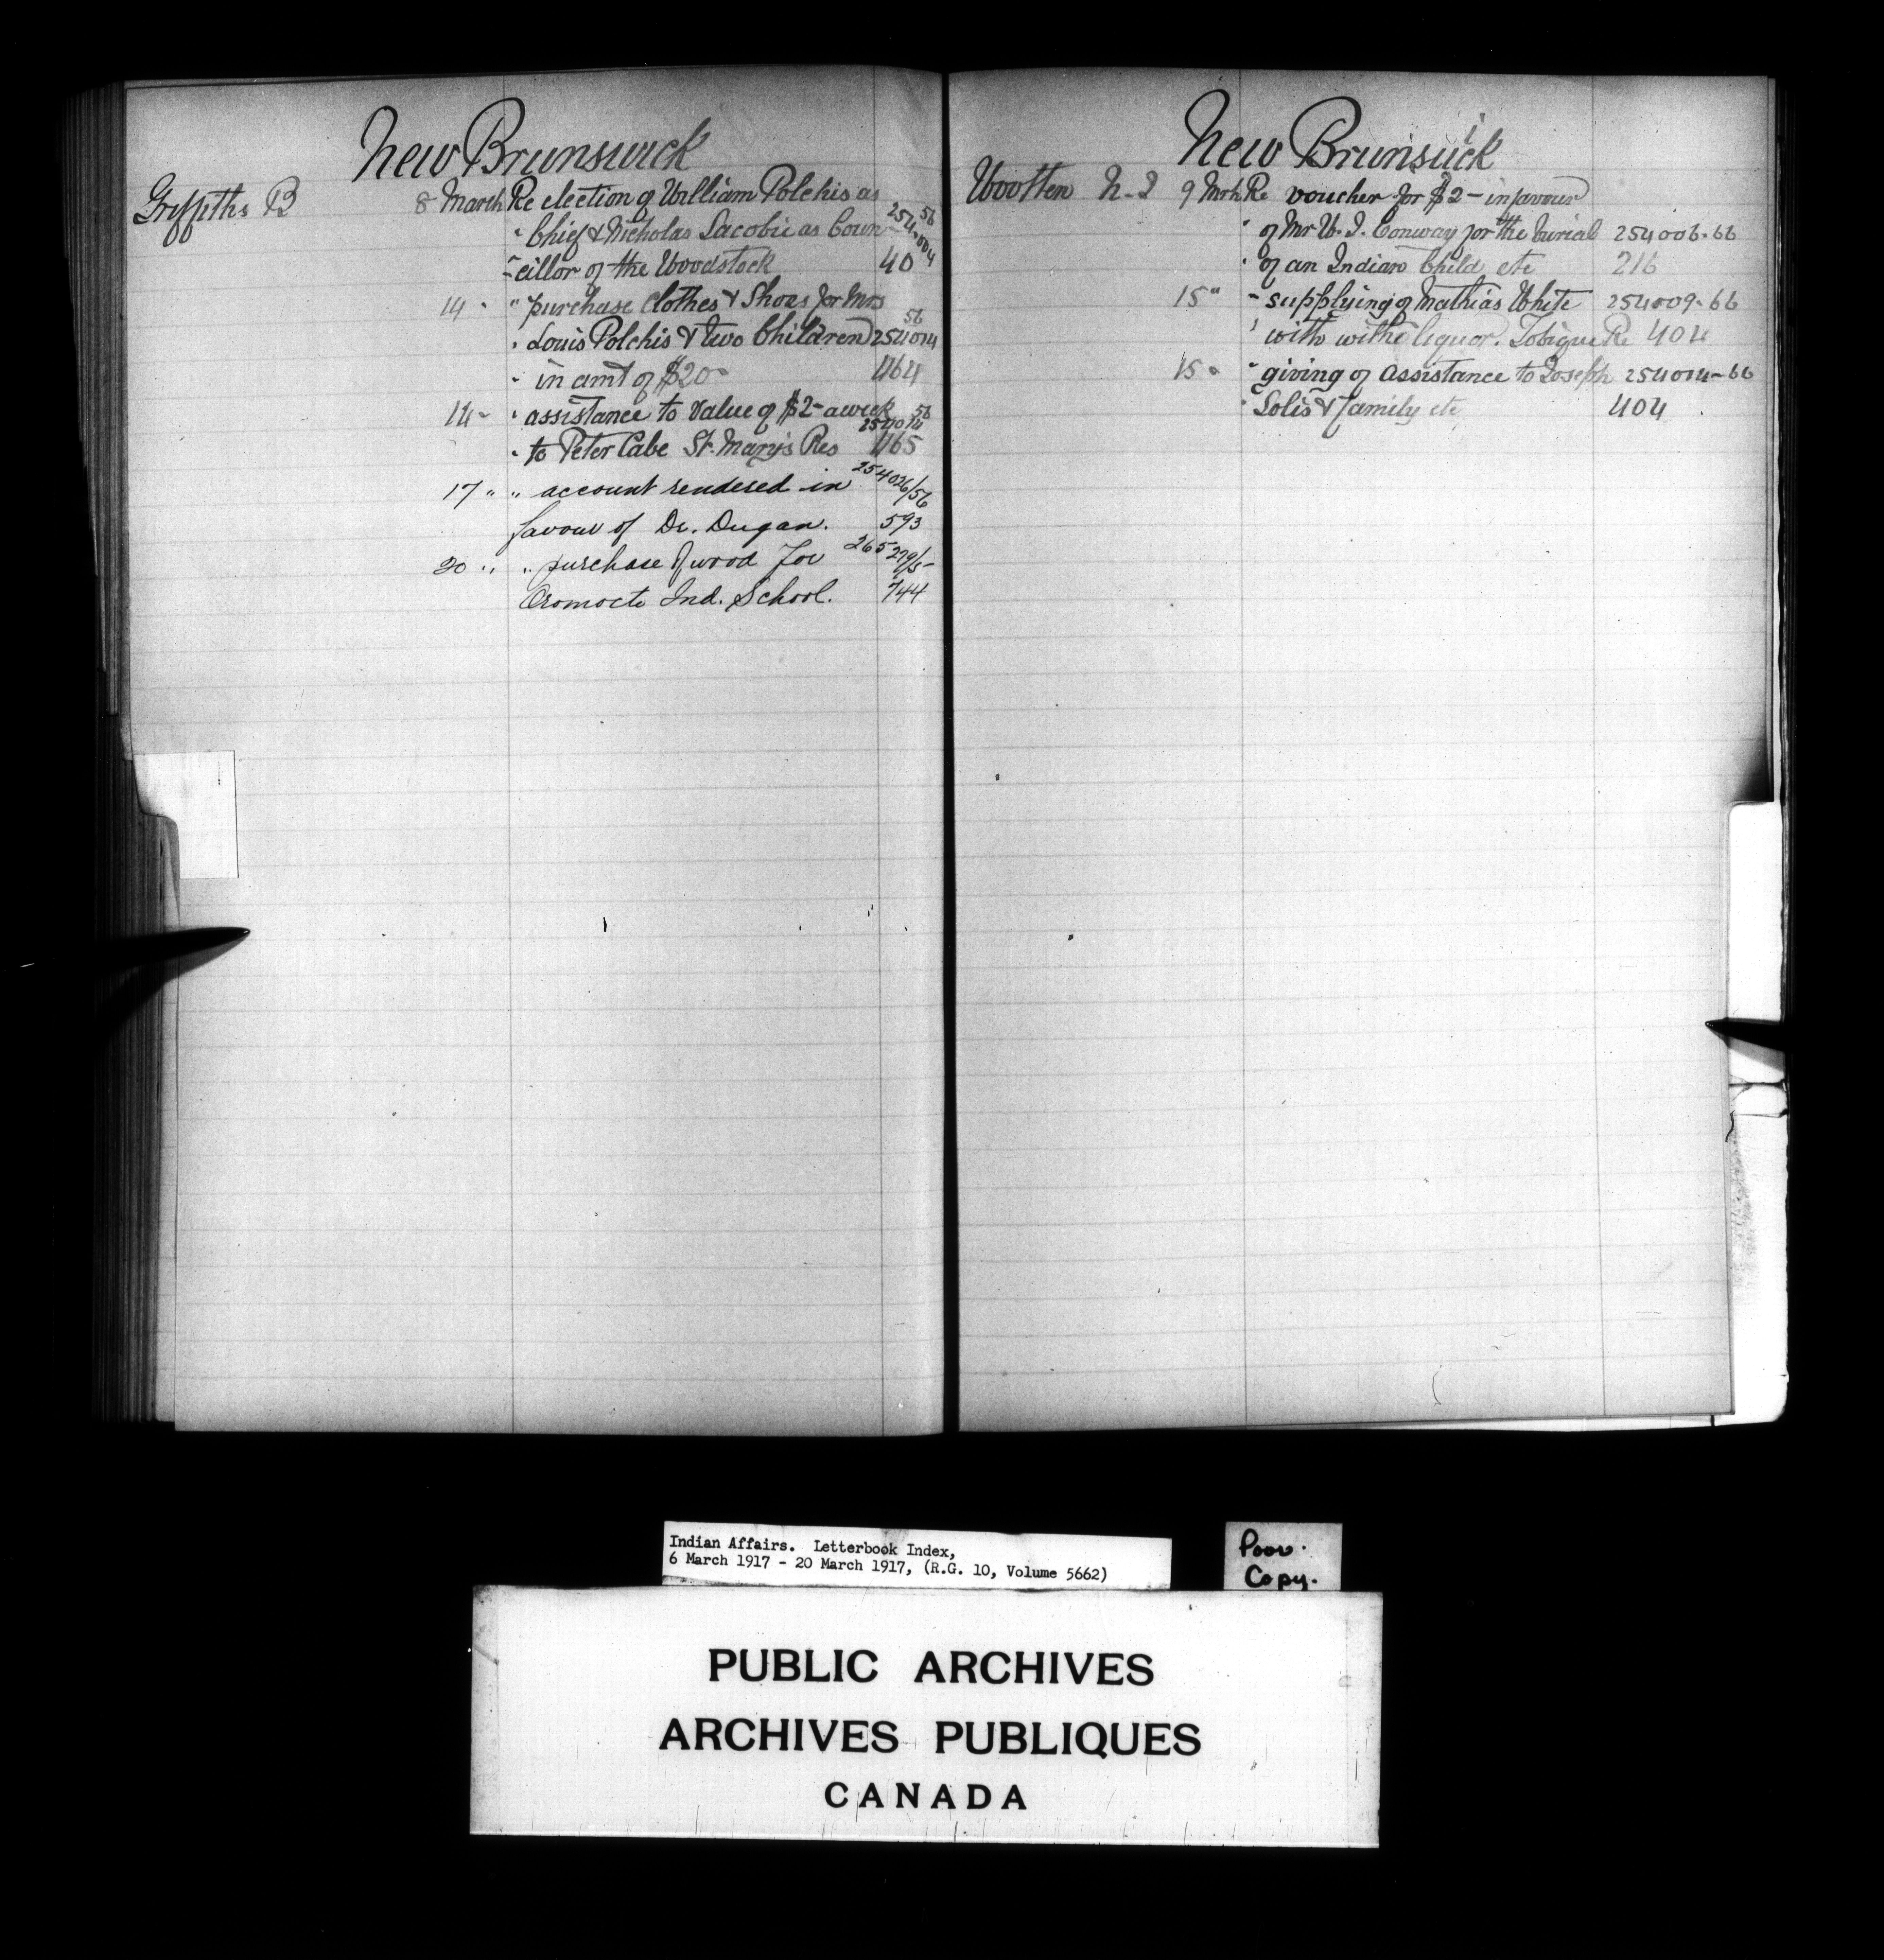 New Brunswick
Griffiths B 8 March Re election of William Polchis as
" Chief & Nicholas Lacobie as Coun- 254004 56
-cillor of the Woodstock 40
14 " " purchase Clothes & Shoes for Mrs
" Louis Polchis & two Children 254014 56
" in amt of $20- 464
14 - " assistance to value of $2- a week
" to Peter Cabe St. Mary's Res 254014 56 465
17 " " account rendered in 254026/56
favour of Dr. Dugan. 593
20 " " purchase of wood for 265279/5-
Oromocto Ind. School. 744
New Brunsick i
Wootten N-I 9 Mrh Re voucher for $2- in favour
" of Mr W. I. Conway for the burial 254006-66
" of an Indian Child etc 216
15 " " supplying of Mathias White 254009-66
" with withe liquor. Tobique Re 404
15 " " giving of assistance to Joseph 254014-66
" Solis & family etc 404
Indian Affairs. Letterbook Index,
6 March 1917 - 20 March 1917, (R.G. 10, Volume 5662)
Poor.
Copy.
PUBLIC ARCHIVES
ARCHIVES PUBLIQUES
CANADA